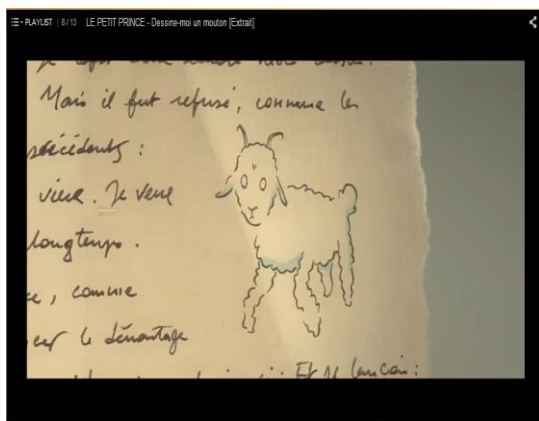 PLAYLIST | 8/13 LE PETIT PRINCE - Dessine-moi un mouton [Extrait]
Mais il fut refusé, comme les
précédents :
vieux. Je veux
longtemps.
comme
le démontage
Et je lançai :